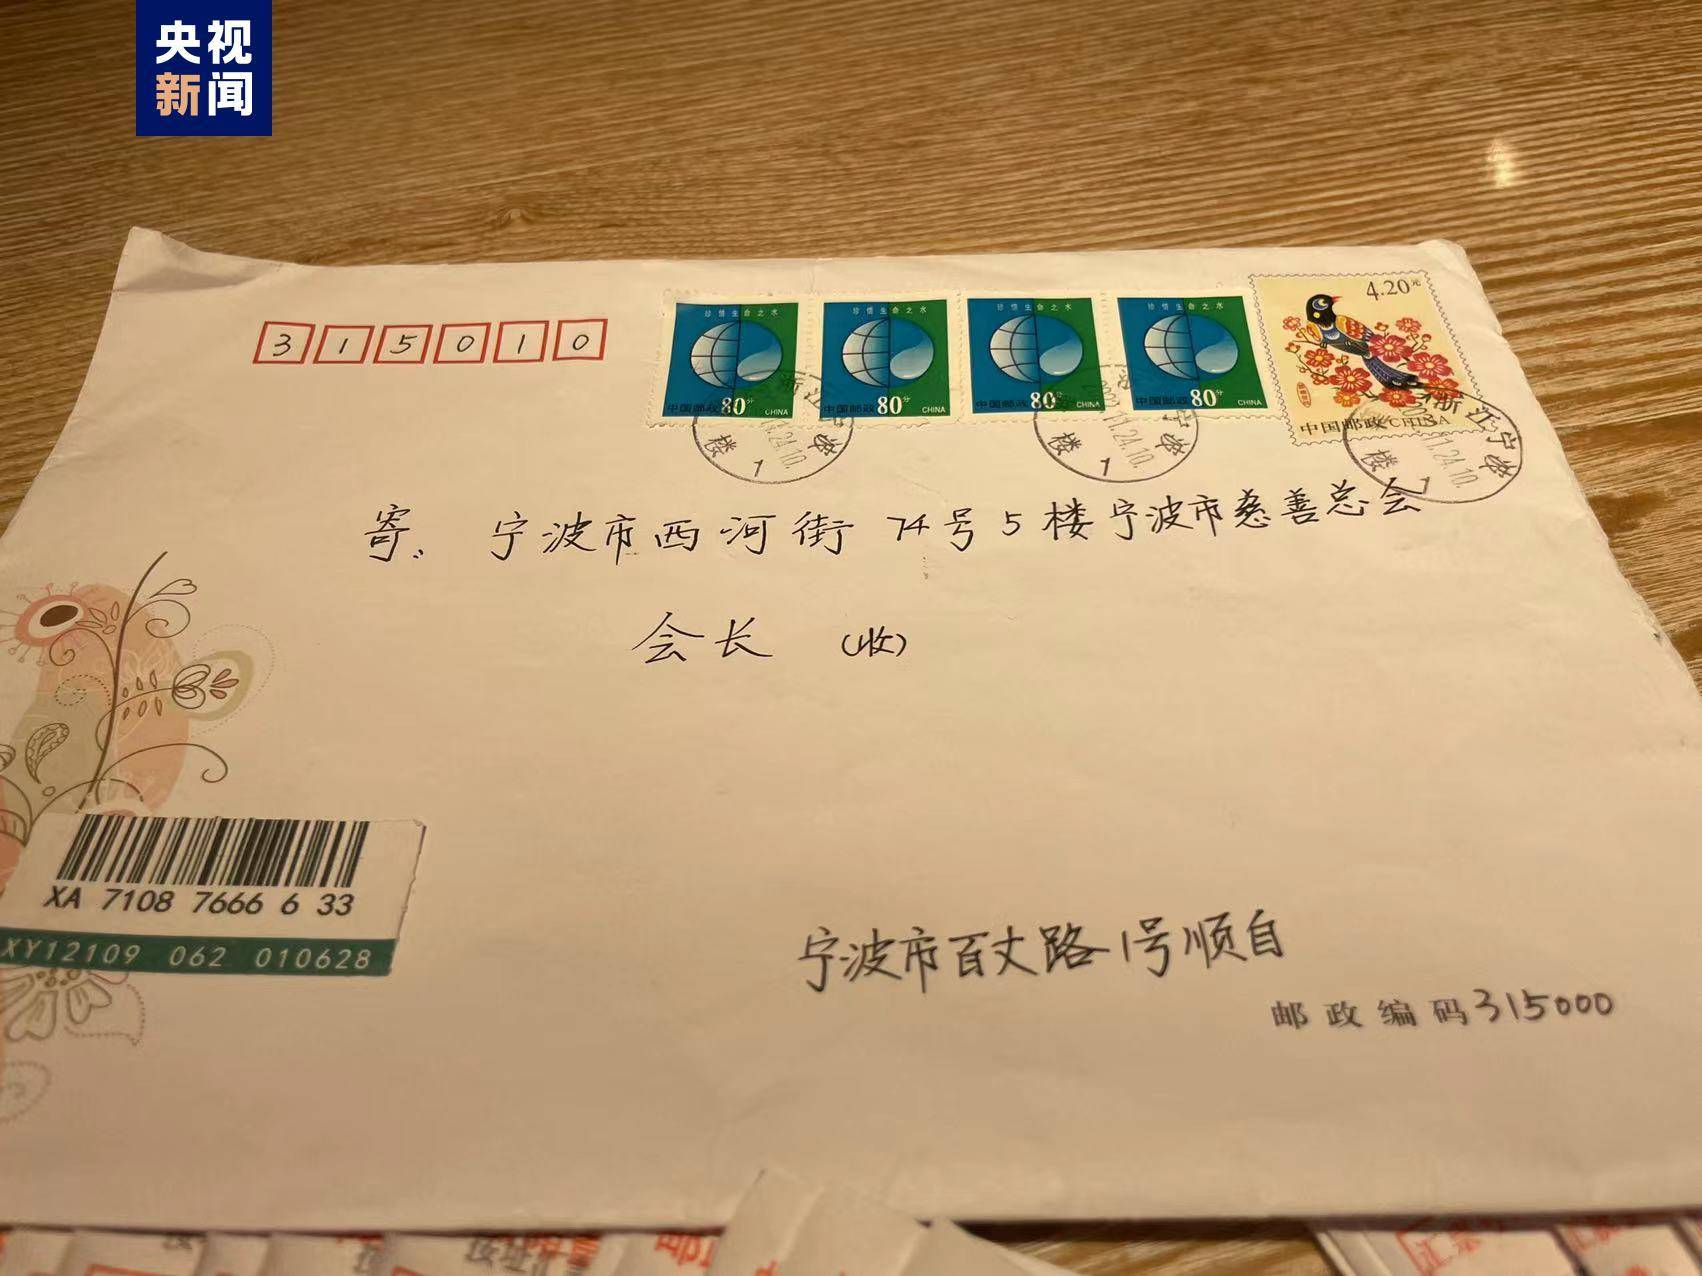 央视
新闻
315010
珍惜生命之水
中国邮政 80分 CHINA
珍惜生命之水
中国邮政 80分 CHINA
珍惜生命之水
中国邮政 80分 CHINA
珍惜生命之水
中国邮政 80分 CHINA
4.20元
中国邮政 CHINA
浙江宁波
楼
1
浙江宁波
楼
1
浙江宁波
楼
1
寄、宁波市西河街74号5楼宁波市慈善总会
会长 (收)
XA 7108 7666 6 33
XY12109 062 010628
宁波市百丈路1号顺自
邮政编码315000